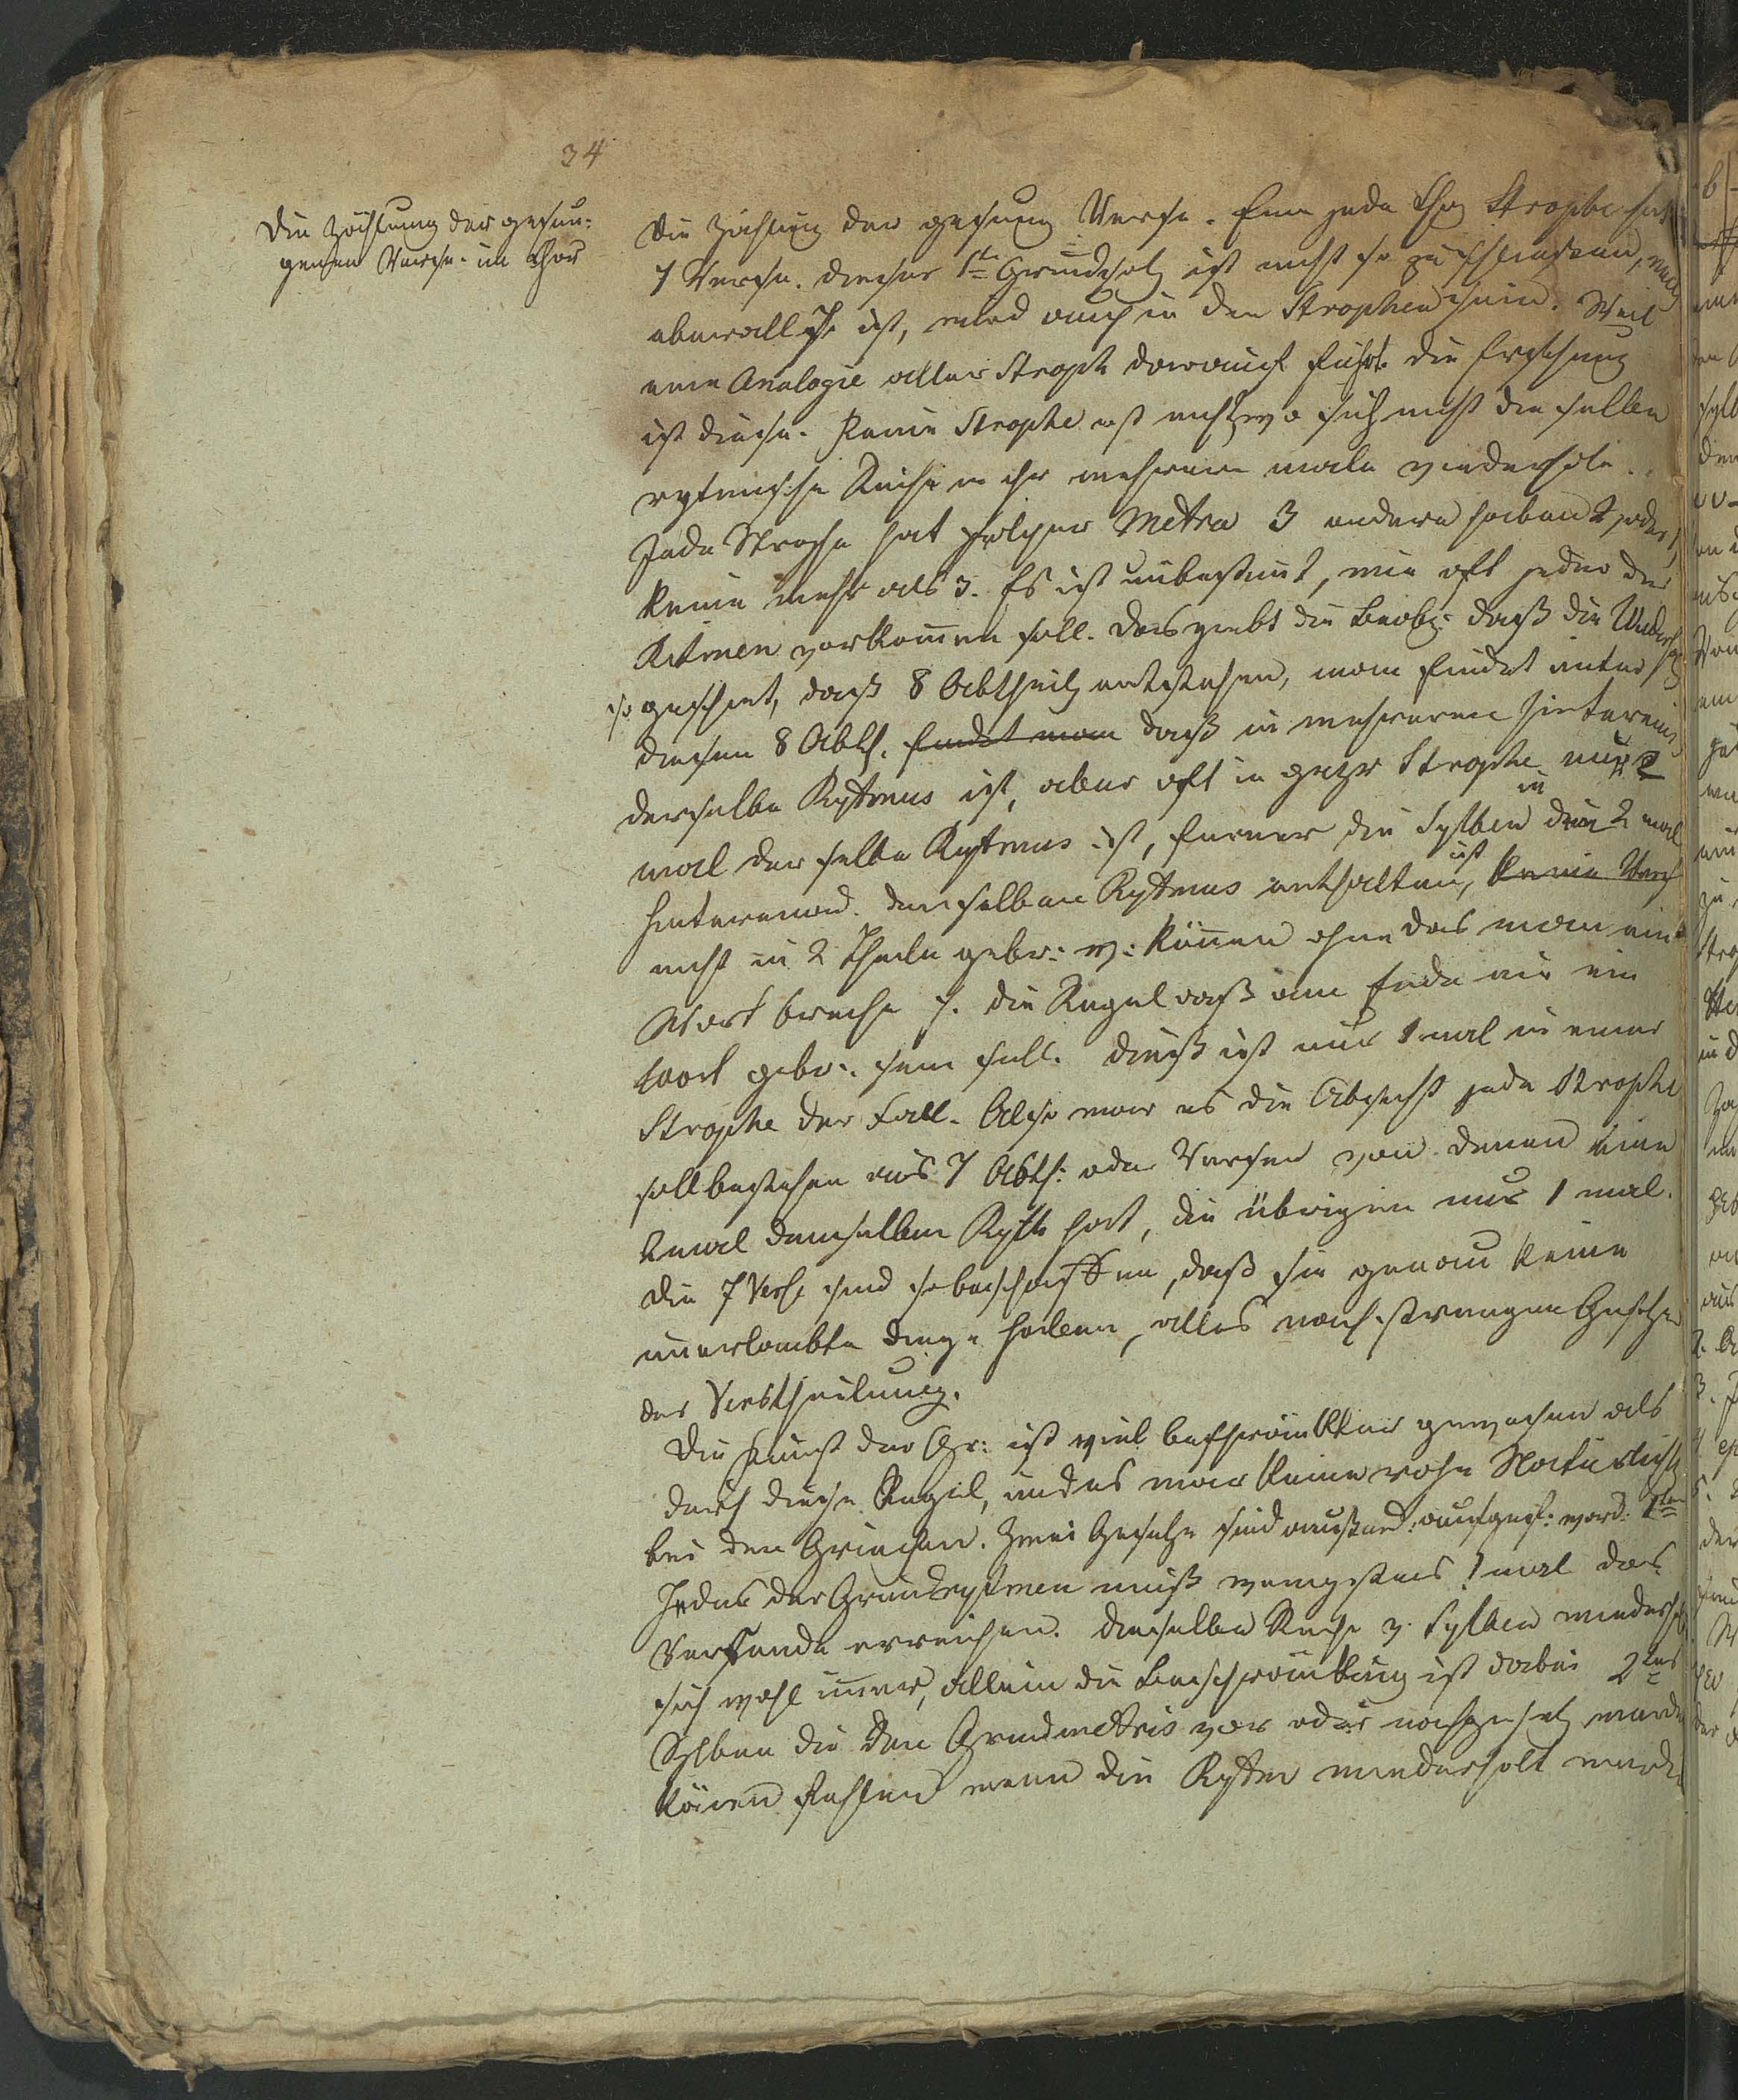 34
Die Zählung der gesun-
genen Verse. im Chor
Die Zählung der gesung Verse. Eine jede Chor Strophe hat
7 Verse. Dieser 1te Grundsatz ist nicht so zu schliessen, was
überall 7 ist, wird auch in den Strophen seyn. Weil
eine Analogie aller Stroph darauf führt. die Erfahrung
ist diese. Keine Strophe ist wo sich nicht dieselbe
rytmische Reihe in ihr mehrere male wiederhole.
Jede Strophe hat solcher Metra 3 andere haben 2 oder 1,
keine mehr als 3. Es ist unbestimt, wie oft jeder der
Ritmen vorkommen soll. Das giebt die Beob: daß die Wiederh
so geschieht, daß 8 Abtheil entstehen, man findet unter
diesen 8 Abth. findet man daß in mehreren hinterein
derselbe Rytmus ist, aber oft in Strophe nur 2
mal derselbe Rytmus ist, ferner die Sylben die in 2 mal
hintereinand. denselben Rytmus enthalten, ist keine Vers
nicht in 2 Theile gebr: w: können ohne das man ein
Wort breche . die Regel daß am Ende nie ein
Wort gebr: sein soll. Dieß ist nur 1 mal in einer
Strophe der Fall. Also war es die Absicht jede Strophe
soll bestehen aus 7 Abth: oder Versen von denen eine
2 mal denselben Ryth hat, die übrigen nur 1 mal.
Die 7 Verse sind so beschaffen, daß sie genau keine
unerlaubte Dinge haben, alles nach strengen Gesetzen
der Verstheilung.
Die Kunst der Gr: ist viel beschränkter gewesen als
durch diese Regel, und es war keine rohe Natürlichk
bei den Griechen. Zwei Gesetze sind 1tens
Jedes der Grundrytmen muß wenigstens 1 mal das
Versende erreichen. dieselbe Reihe v. Sylben wiederholt
sich wohl immer, allein die Beschränkung ist dabei 2tens
Sylben die den Grundmetris vor oder nachgesetz werden
können fehlen wenn die Rytm wiederholt werden